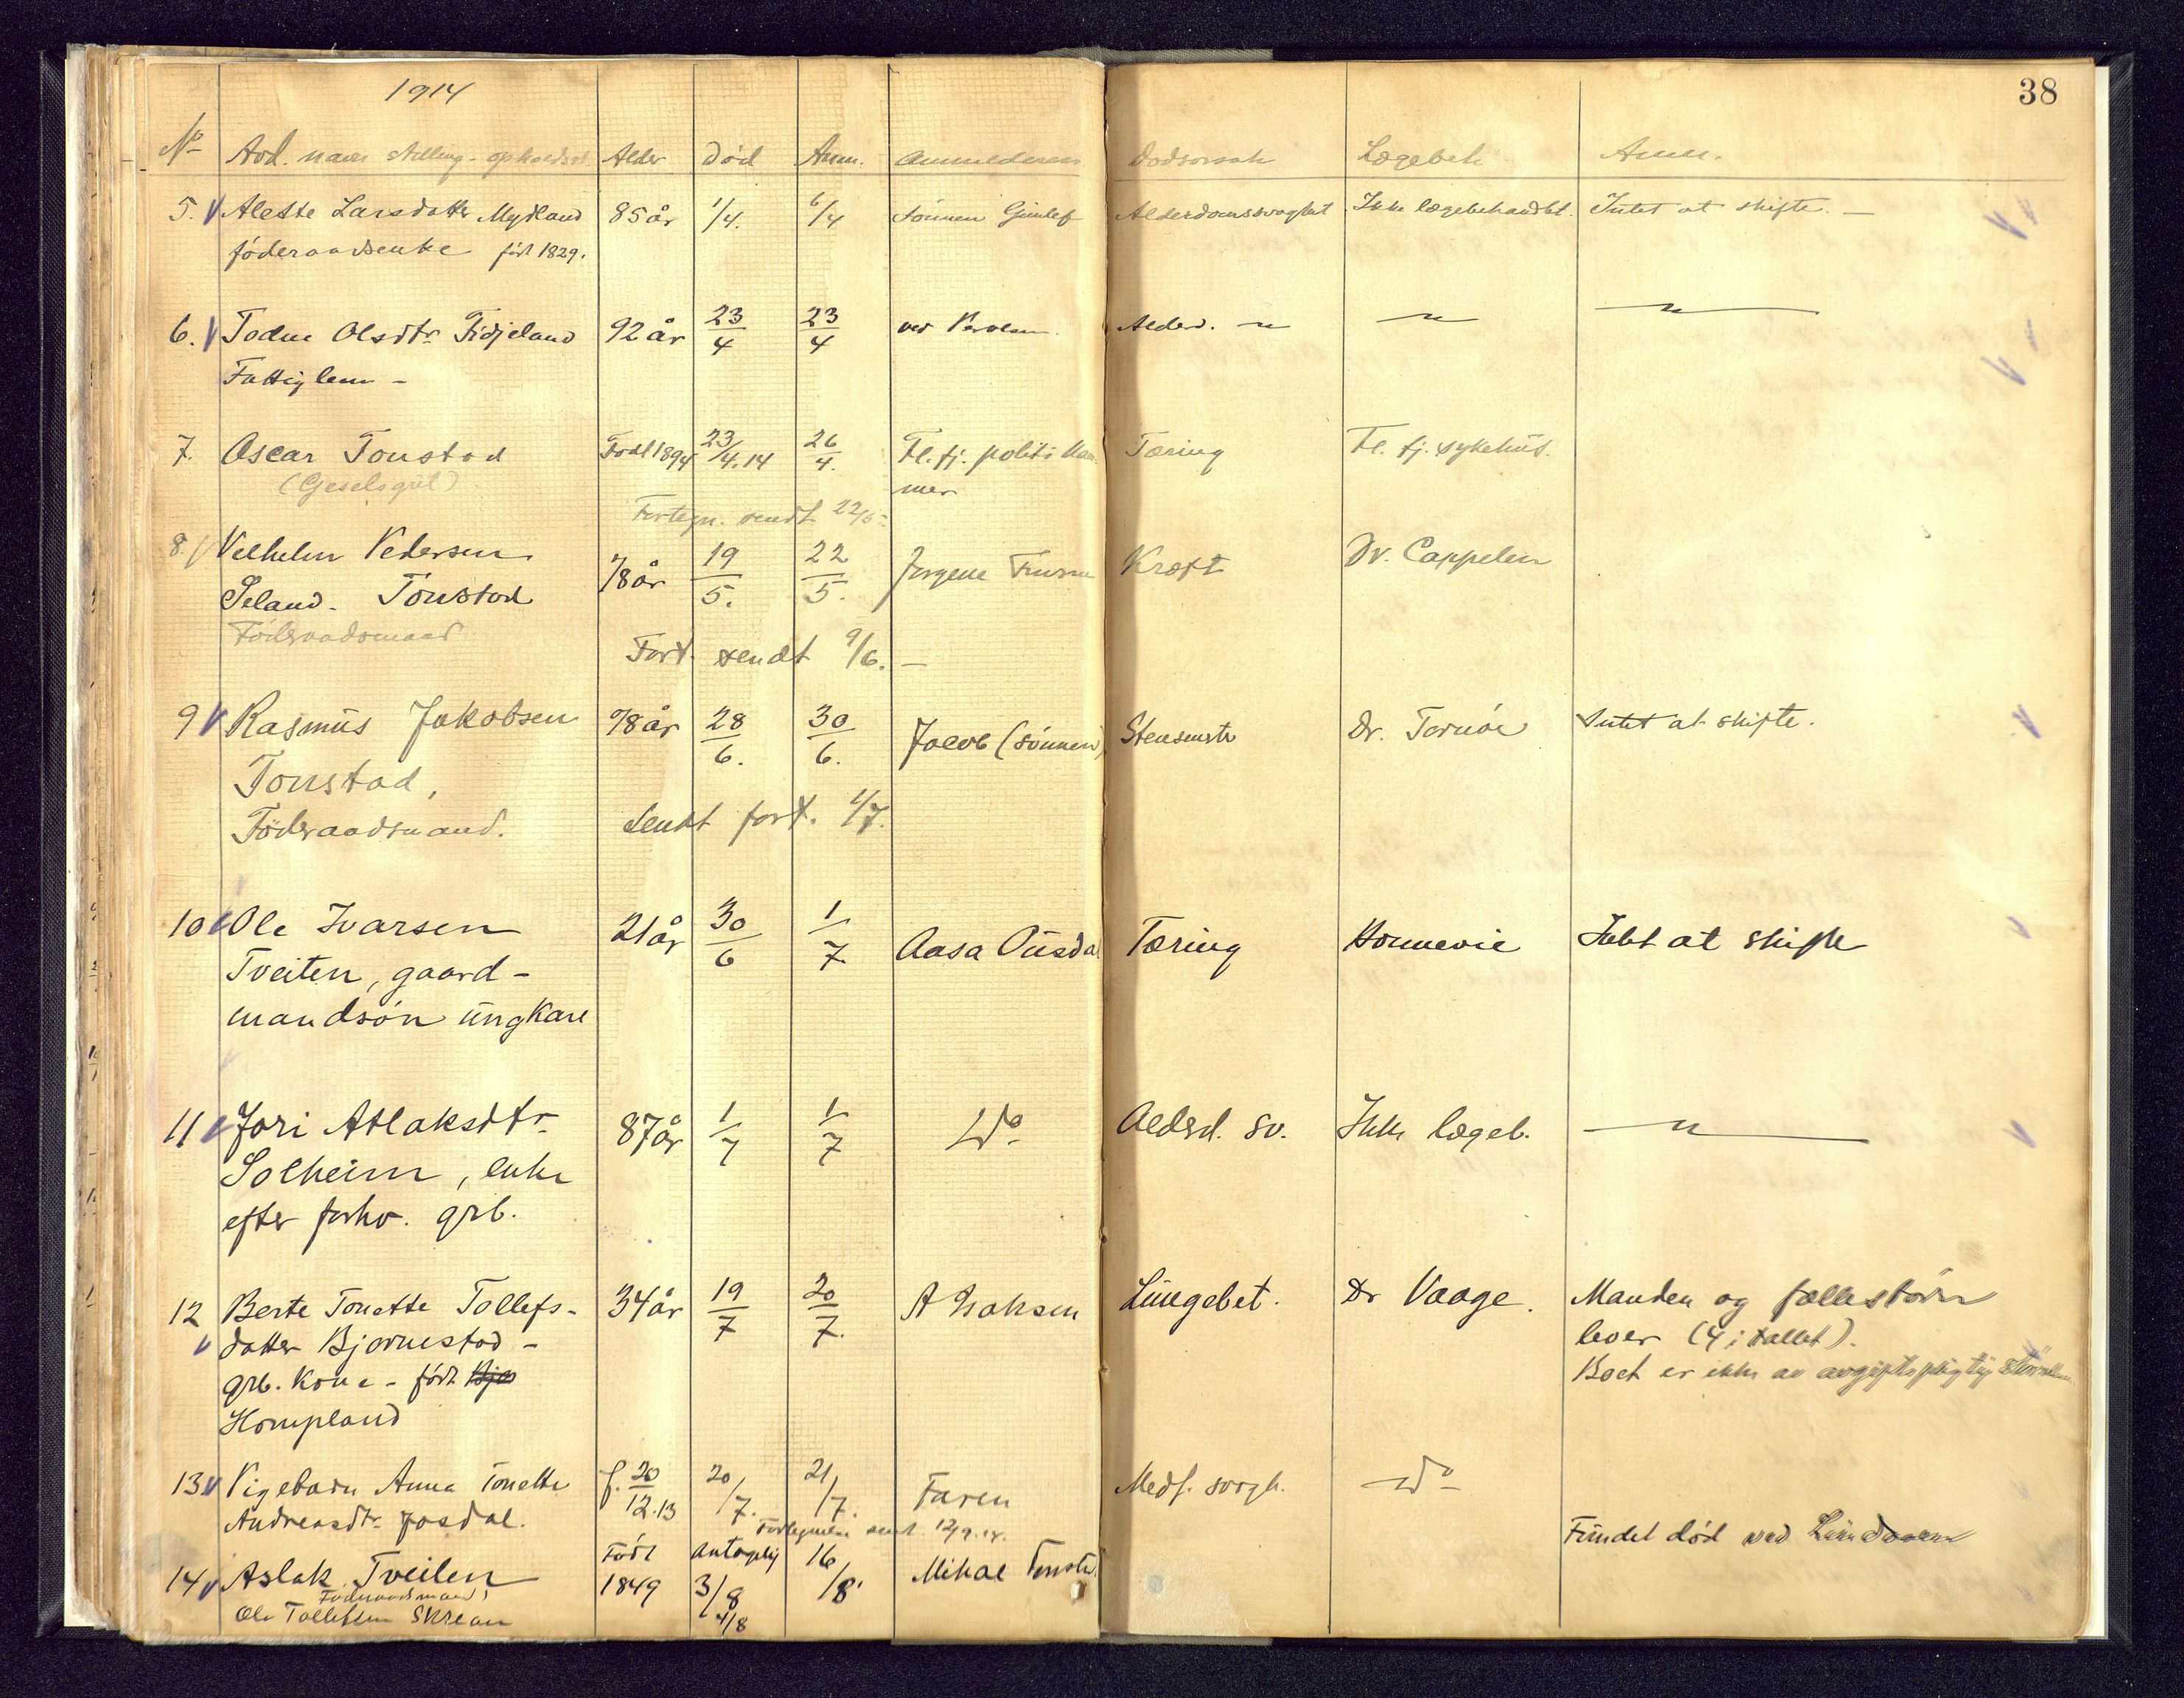 38
1914
No Avd. navn stilling - opholdsst Alder Död Anm. Anmelderen Dødsorsak Lægebeh Anm.
5. Alette Larsdatter Mydland 85 år 1/4. 6/4 Sönnen Gunlef Alderdomssvaghet Ikke lægebehandlet. Intet at skifte. —
föderaadsenke födt 1829.
6. Todne Olsdtr. Fidjeland 92 år 23/4 23/4 ved Alderd. — " — — " — — " —
Fattiglem -
7. Oscar Tonstad Födt 1894 23/4.14 26/4. Fl. fj. politikam- Tæring Fl. fj. sykehus.
(Geselsgut) mer
Fortegn. sendt 22/5
8. Vilhelm Pedersen 78 år 19/5. 22/5. Jorgene Kræft Dr. Cappelen
Seland - Tonstad
Föderaadsmand
Fort. sendt 9/6. —
9 Rasmus Jakobsen 78 år 28/6. 30/6. Jacob (sönnen) Dr. Tornöe Intet at skifte.
Tonstad,
Föderaadsmand. Sendt fort. 1/7.
10 Ole Ivarsen 21 år 30/6 1/7 Aasa Ousdal Tæring Honnevie Intet at skifte
Tveiten, gaard-
mandsön ungkare
11 Jori Atlaksdtr. 87 år 1/7 1/7 Do Alderd. sv. Ikke lægeb. — " —
Solheim, enke
efter forhv. grb.
12 Berte Tonette Tollefs- 34 år 19/7 20/7. A Isaksen Lungebet. Dr Vaage. Manden og fællesbörn
datter Bjornestad - lever (4 i tallet).
grb. kone - födt Bjo Boet er ikke av avgiftspligtig störrelse
Hompland
13 Pigebarn Anna Tonette f. 20/12.13 20/7. 21/7. Faren Medf. svagh. Do
Andreasdtr. Josdal.
Fortegnelse sendt 12/9.18.
Fundet död ved
14 Aslak Tveiten Födt 1849 Antagelig 3/8 16/8. Mikal Tonstad
Föderaadsmand
Ole Tollefsen Skreaa 4/8